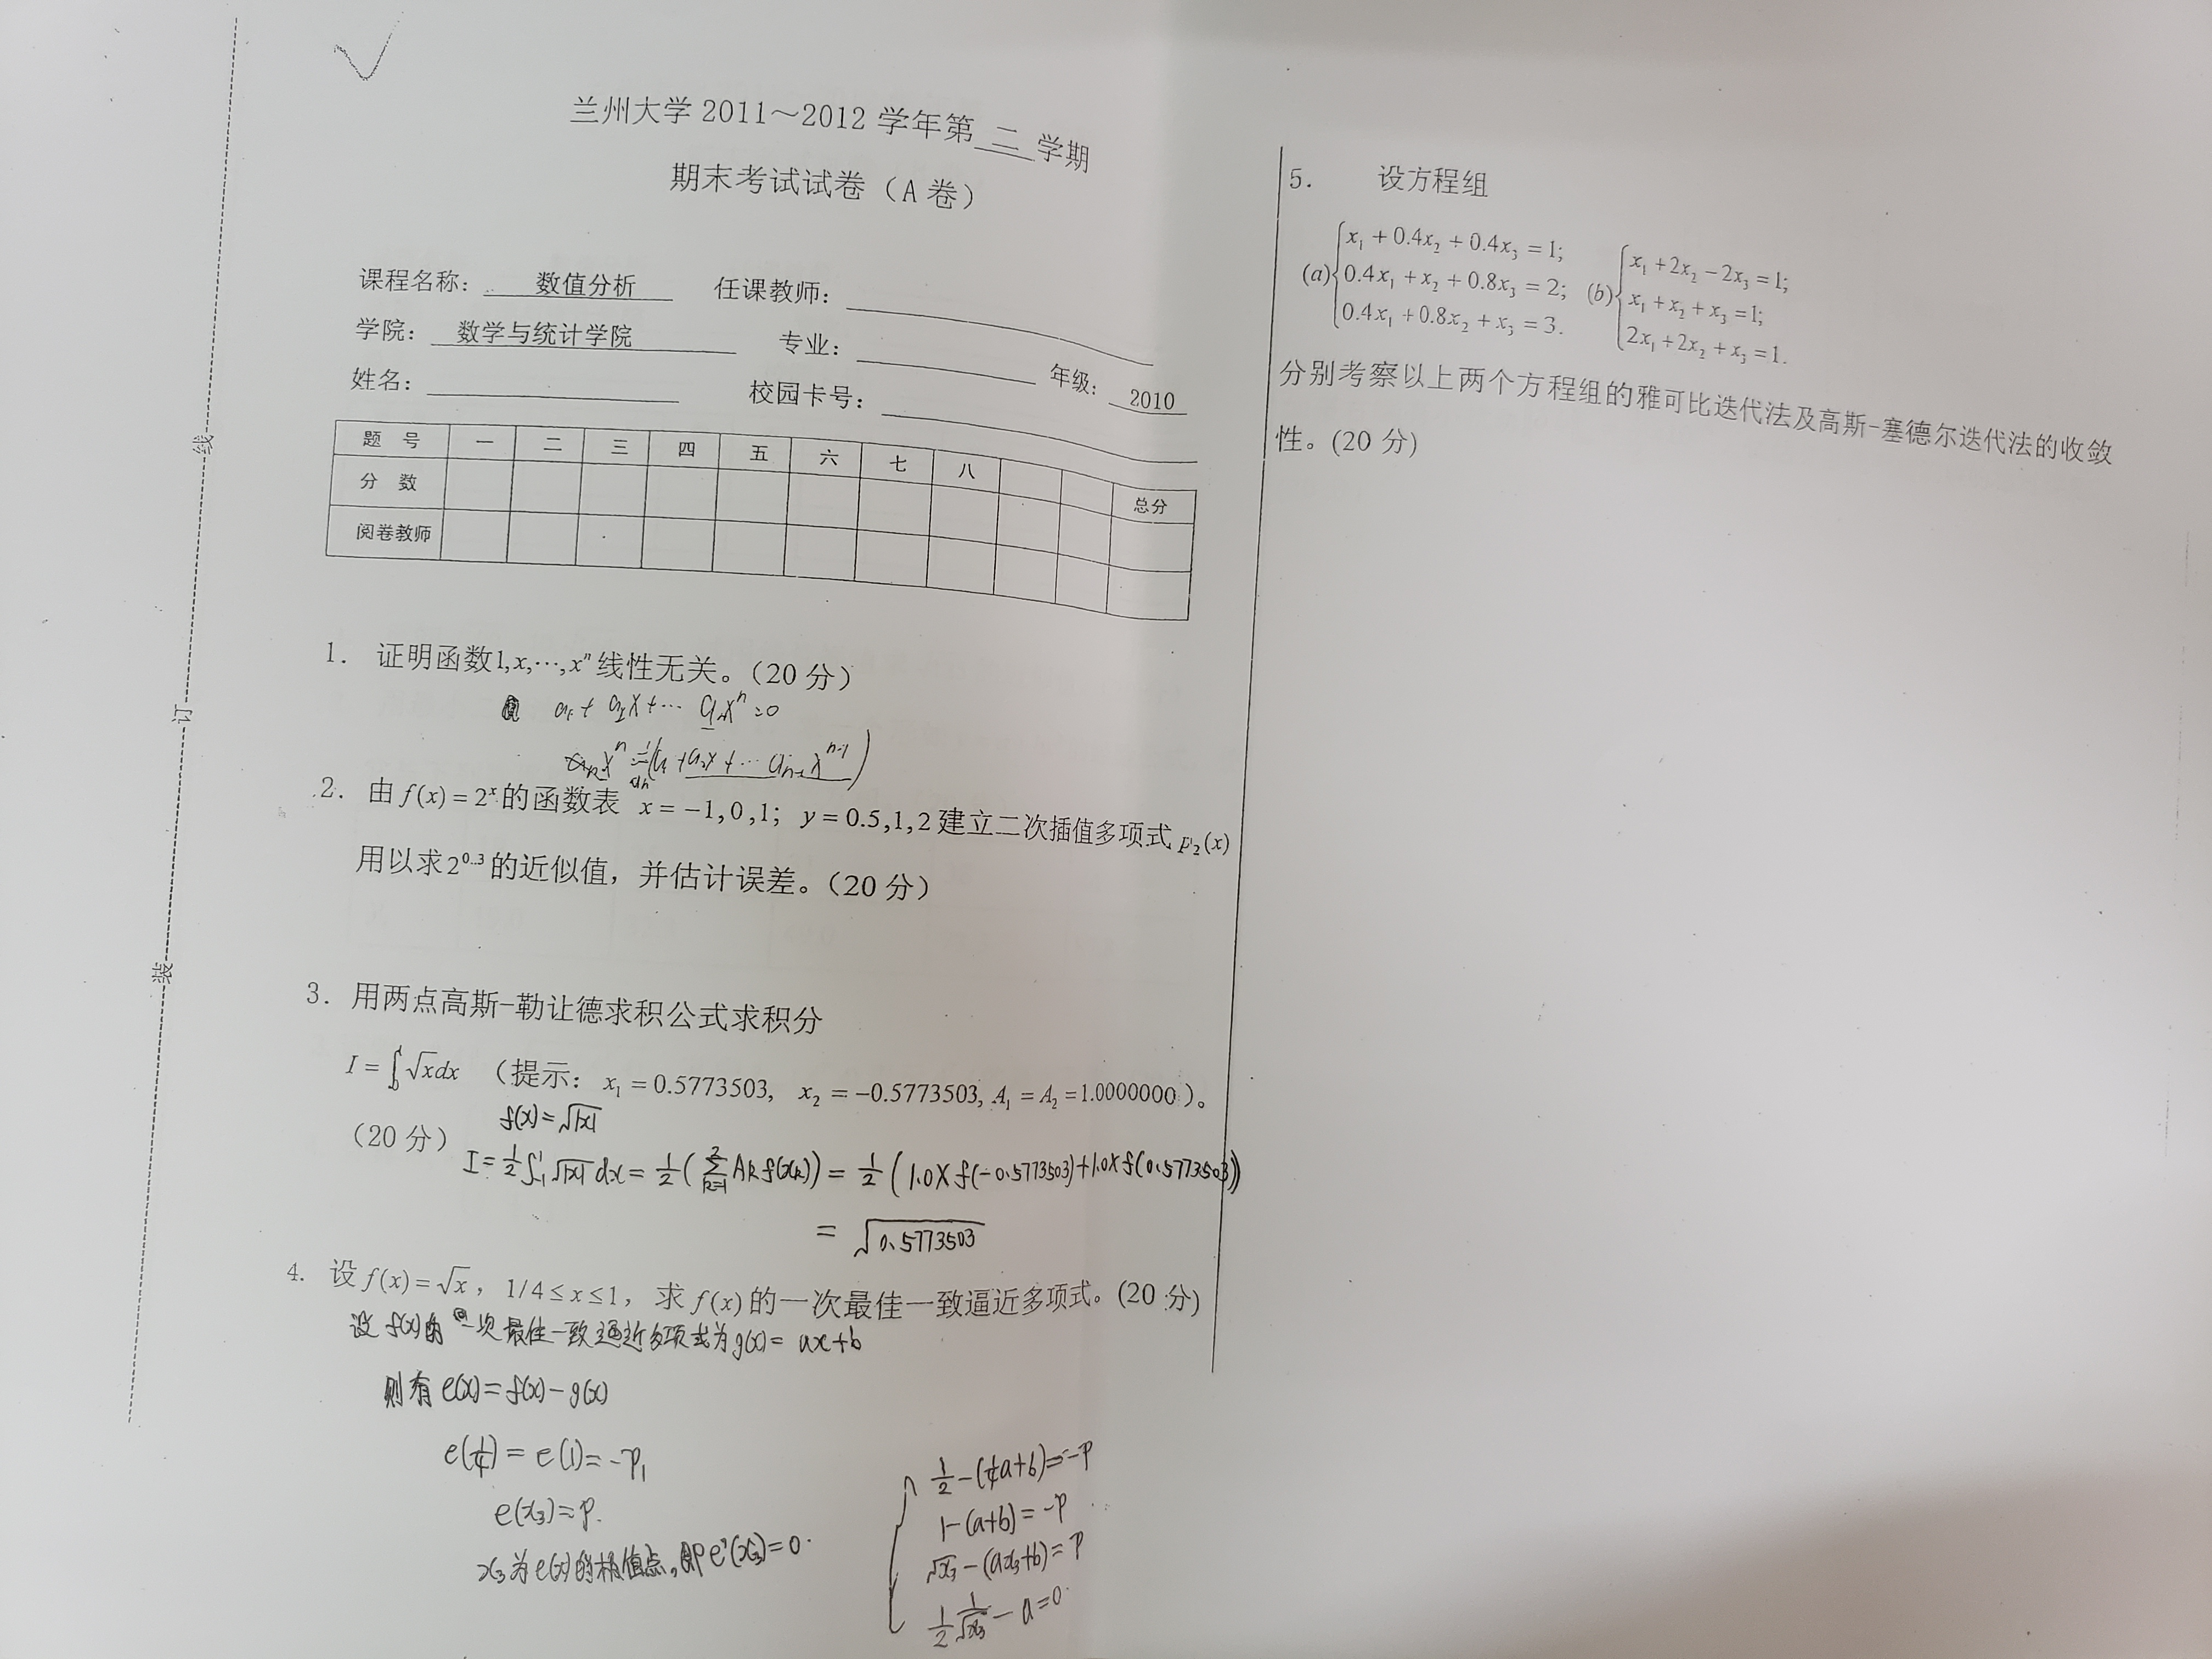 兰州大学 2011～2012 学年第 二 学期
期末考试试卷（A 卷）
课程名称： 数值分析 任课教师：
学院： 数学与统计学院 专业： 年级： 2010
姓名： 校园卡号：
题 号 一 二 三 四 五 六 七 八 总分
分 数
阅卷教师
线
订
装
1. 证明函数1,x,⋯,xⁿ线性无关。（20 分）
a₁+ a₂x+⋯ aₙxⁿ=0
2. 由 f(x)=2ˣ的函数表 x=−1,0,1; y=0.5,1,2 建立二次插值多项式 P₂(x)
用以求2^0.3的近似值，并估计误差。（20 分）
3. 用两点高斯-勒让德求积公式求积分
I=∫₀¹√x dx （提示：x₁=0.5773503, x₂=−0.5773503, A₁=A₂=1.0000000）。
f(x)=√|x|
（20 分）
I=½∫₋₁¹√|x| dx=½(∑ₖ₌₁² Aₖf(xₖ))=½(1.0×f(-0.5773503)+1.0×f(0.5773503))
=√0.5773503
4. 设 f(x)=√x，1/4≤x≤1，求 f(x)的一次最佳一致逼近多项式。(20 分)
设 f(x)的 一次最佳一致逼近多项式为g(x)=ax+b
则有 e(x)=f(x)-g(x)
e(¼)=e(1)=-P₁
e(x₃)=P.
x₃为e(x)的极值点，即e'(x₃)=0.
½-(¼a+b)=-P
1-(a+b)=-P
√x₃-(ax₃+b)=P
½ 1/√x₃-a=0.
5. 设方程组
(a){x₁+0.4x₂+0.4x₃=1; (b){x₁+2x₂−2x₃=1;
0.4x₁+x₂+0.8x₃=2; x₁+x₂+x₃=1;
0.4x₁+0.8x₂+x₃=3. 2x₁+2x₂+x₃=1.
分别考察以上两个方程组的雅可比迭代法及高斯-塞德尔迭代法的收敛
性。(20 分)